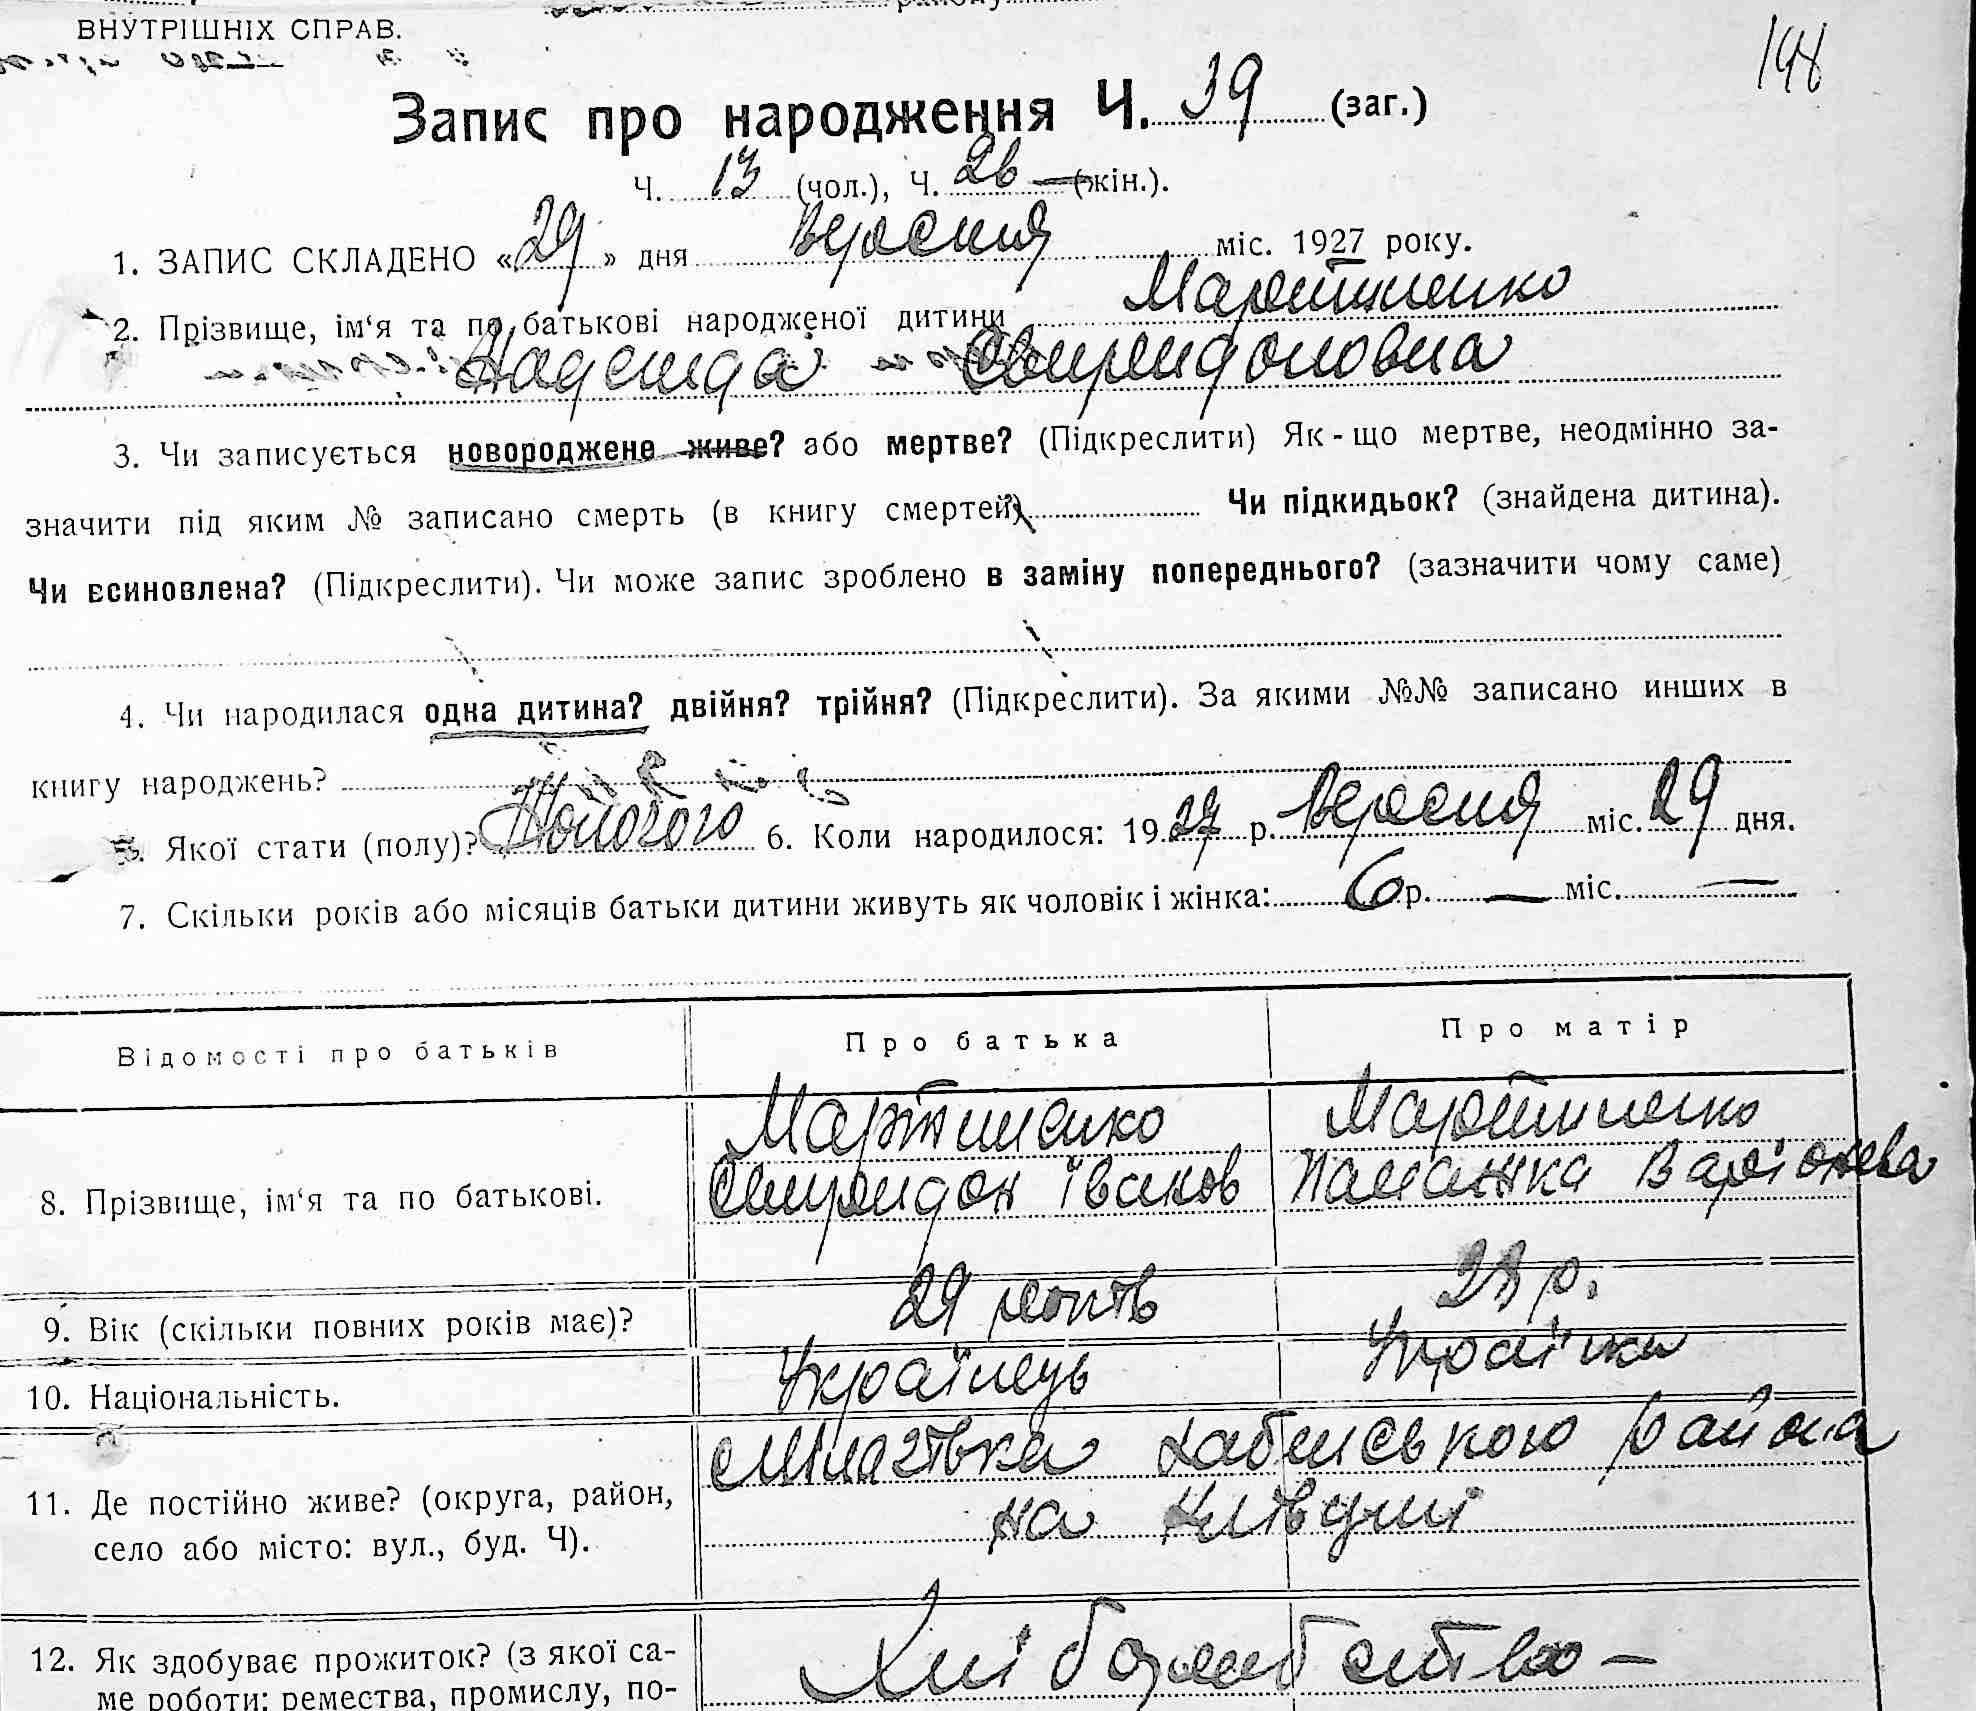 ВНУТРІШНІХ СПРАВ.
198
Запис про народження Ч. 39 (заг.)
Ч. 13 (чол.), Ч. 26 — (жін.).
1. ЗАПИС СКЛАДЕНО « 29 » дня Вересня міс. 1927 року.
2. Прізвище, ім‘я та по батькові народженої дитини Мартиненко
Надежда Свиридоновна
3. Чи записується новороджене живе? або мертве? (Підкреслити) Як - що мертве, неодмінно за-
значити під яким № записано смерть (в книгу смертей) Чи підкидьок? (знайдена дитина).
Чи всиновлена? (Підкреслити). Чи може запис зроблено в заміну попереднього? (зазначити чому саме)
4. Чи народилася одна дитина? двійня? трійня? (Підкреслити). За якими №№ записано инших в
книгу народжень?
5. Якої стати (полу)? 6. Коли народилося: 19 27 р. Вересня міс. 29 дня.
7. Скільки років або місяців батьки дитини живуть як чоловік і жінка: 6 р. — міс. —
Відомості про батьків Про батька Про матір
8. Прізвище, ім‘я та по батькові. Мартиненко Свиридон Іванов Мартиненко
9. Вік (скільки повних років має)? 29 років 28 р.
10. Національність. Українець Українка
11. Де постійно живе? (округа, район, район
село або місто: вул., буд. Ч). на Київщині
12. Як здобуває прожиток? (з якої са- Хліборобство —
ме роботи: ремества, промислу, по-